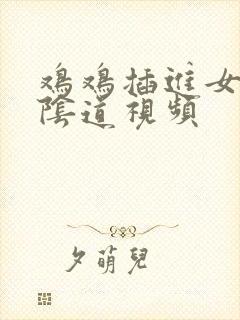 鸡鸡插進女
陰道視頻
夕萌兒